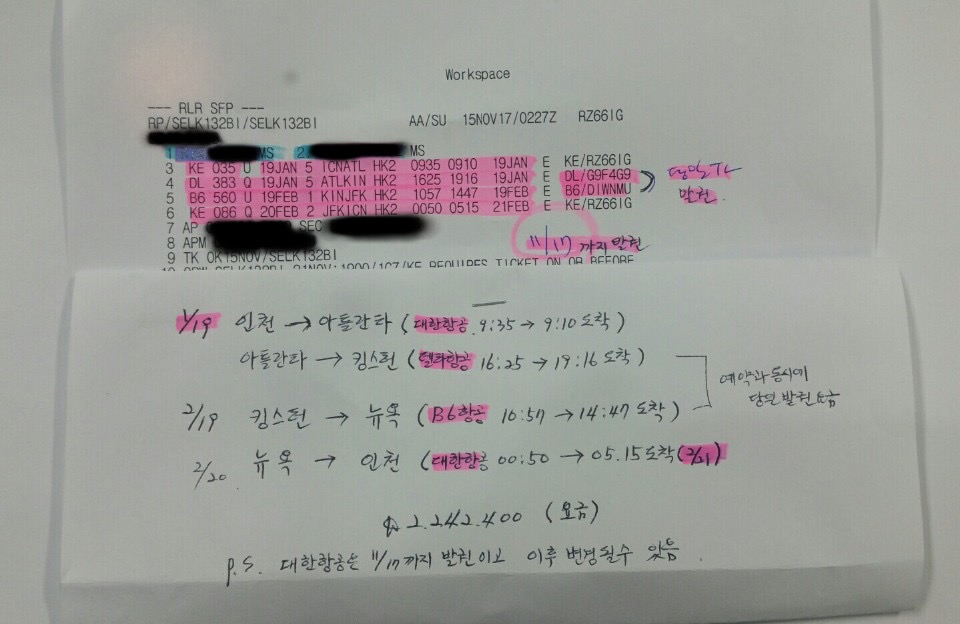 Workspace
--- RLR SFP ---
RP/SELK132BI/SELK132BI AA/SU 15NOV17/0227Z RZ66IG
1 MS 2 MS
3 KE 035 U 19JAN 5 ICNATL HK2 0935 0910 19JAN E KE/RZ66IG
4 DL 383 Q 19JAN 5 ATLKIN HK2 1625 1916 19JAN E DL/G9F4G9
5 B6 560 U 19FEB 1 KINJFK HK2 1057 1447 19FEB E B6/DIWNMU
6 KE 086 Q 20FEB 2 JFKICN HK2 0050 0515 21FEB E KE/RZ66IG
발권
7 AP SEC
8 APM
11/17 까지 발권
9 TK OK15NOV/SELK132BI
1/19 인천 → 아틀란타 (대한항공 9:35 → 9:10 도착)
아틀란타 → 킹스턴 (델타항공 16:25 → 19:16 도착)
예약과 동시에
당일 발권 요금
2/19 킹스턴 → 뉴욕 (B6항공 10:57 → 14:47 도착)
2/20 뉴욕 → 인천 (대한항공 00:50 → 05.15 도착(2/21)
2.242.400 (요금)
P.S. 대한항공은 11/17까지 발권이고 이후 변경될수 있음.